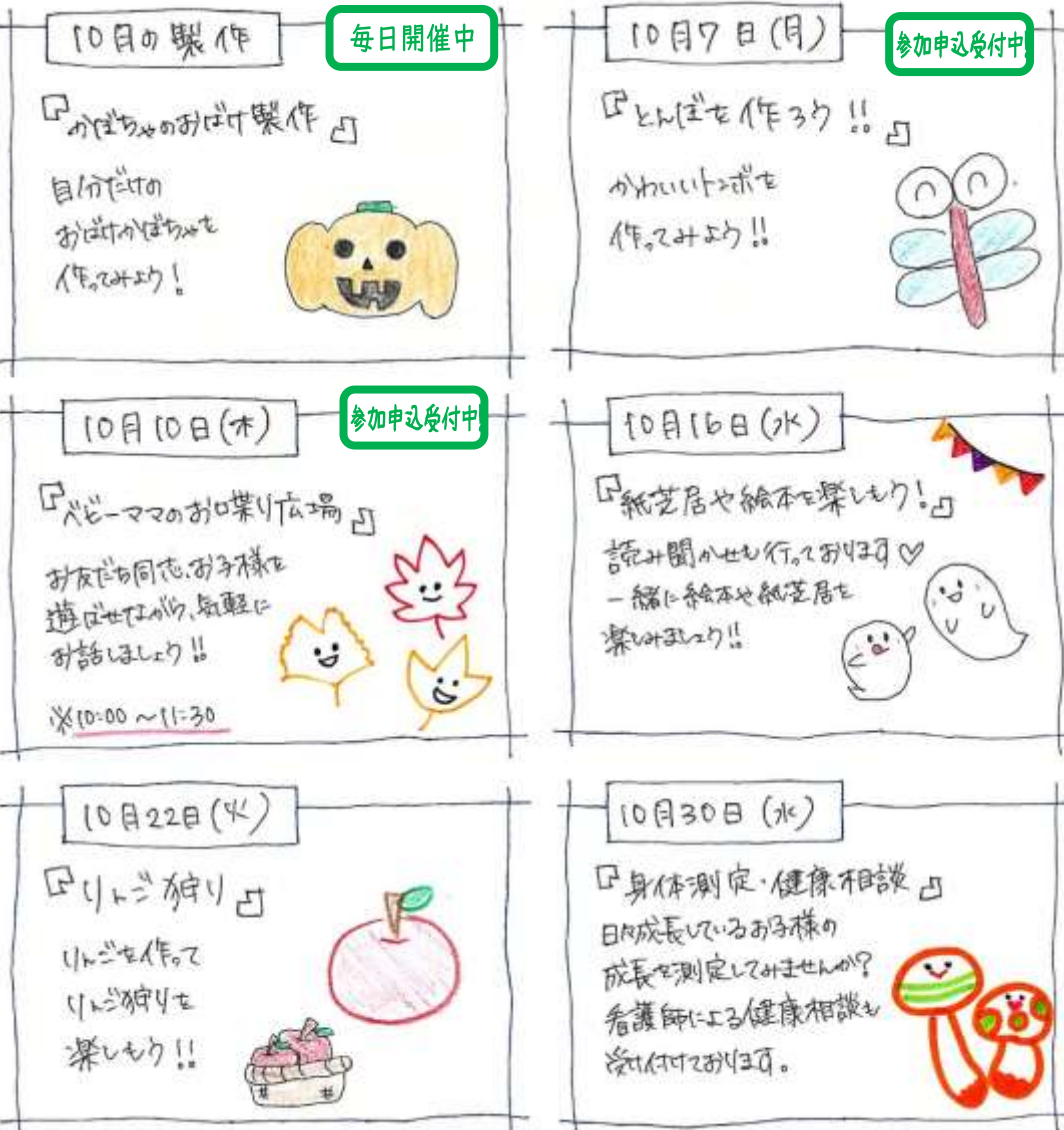 10月の製作
毎日開催中
『かぼちゃのおばけ製作』
自分だけの
おばけかぼちゃを
作ってみよう！
10月7日(月)
参加申込受付中!
『とんぼを作ろう!!』
かわいいトンボを
作ってみよう!!
10月10日(木)
参加申込受付中!
『ベビーママのお喋り広場』
お友だち同志、お子様を
遊ばせながら、気軽に
お話しましょう!!
※10:00～11:30
10月16日(水)
『紙芝居や絵本を楽しもう!』
読み聞かせも行っております♡
一緒に絵本や紙芝居を
楽しみましょう!!
10月22日(火)
『りんご狩り』
りんごを作って
りんご狩りを
楽しもう!!
10月30日(水)
『身体測定・健康相談』
日々成長しているお子様の
成長を測定してみませんか?
看護師による健康相談も
受け付けております。